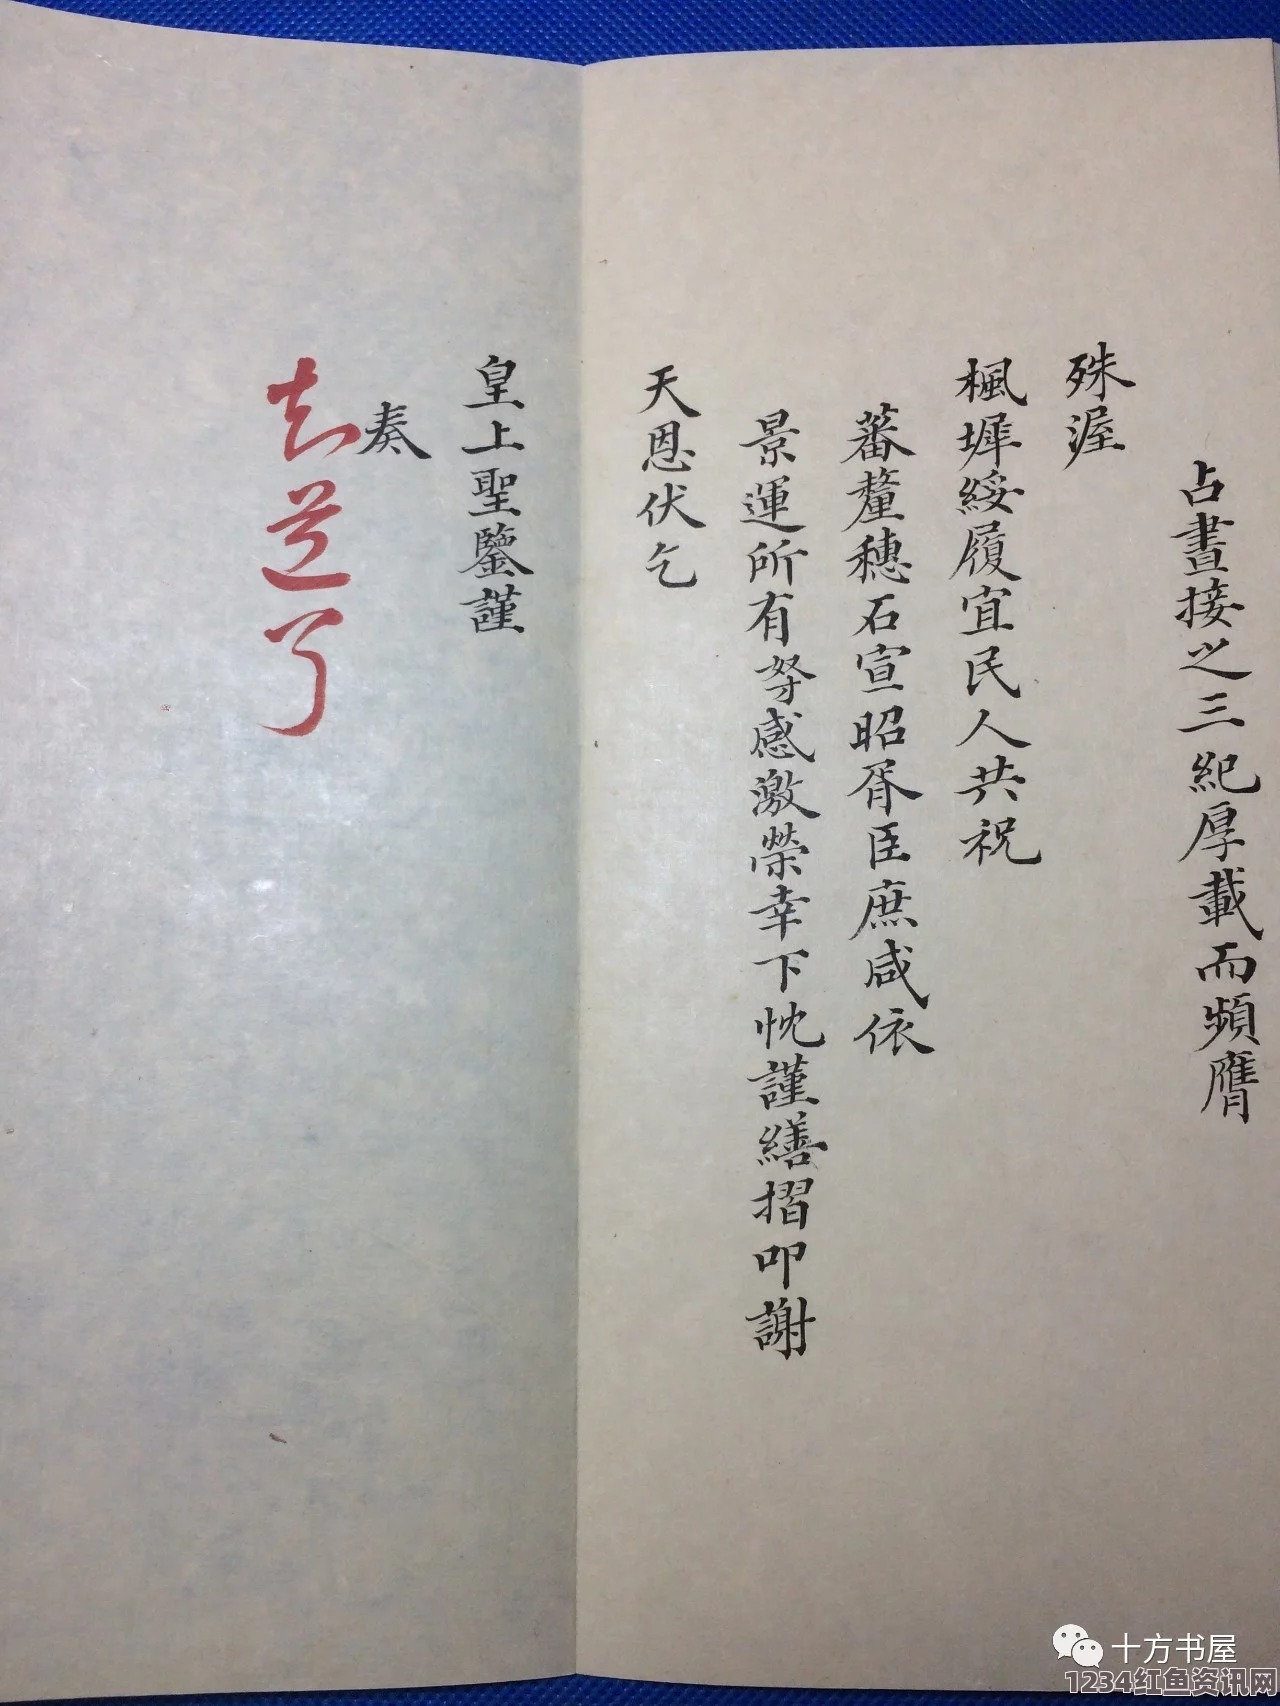 占晝接之三紀厚載而頻膺
殊渥
楓墀綏履宜民人共祝
蕃釐穗石宣昭胥臣庶咸依
景運所有孥感激榮幸下忱謹繕摺叩謝
天恩伏乞
皇上聖鑒謹
奏
知道了
十方书屋
1234红鱼资讯网